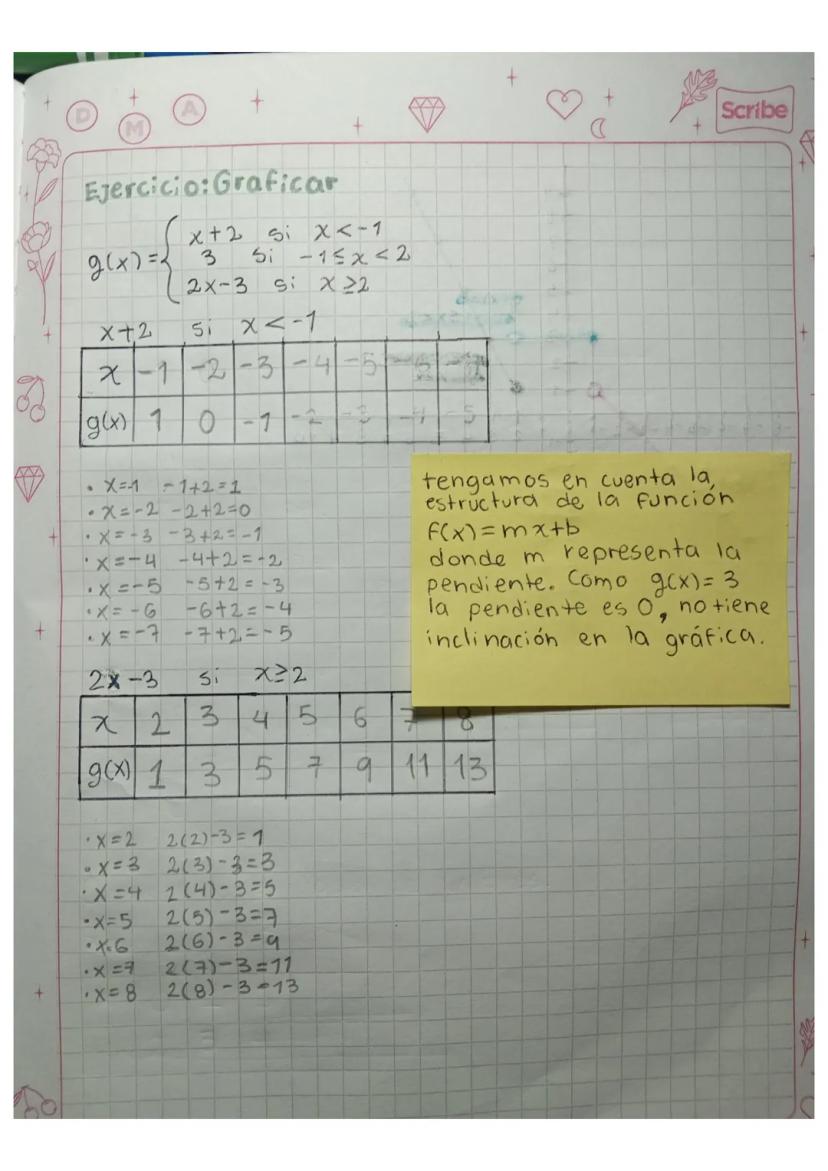 D M A
Scribe
Ejercicio: Graficar
g(x)= { x+2 si x<-1
3 si -1≤x<2
2x-3 si x≥2
x+2 si x<-1
x -1 -2 -3 -4 -5 -6 -7
g(x) 1 0 -1 -2 -3 -4 -5
• x=-1 -1+2=1
• x=-2 -2+2=0
• x=-3 -3+2=-1
• x=-4 -4+2=-2
• x=-5 -5+2=-3
• x=-6 -6+2=-4
• x=-7 -7+2=-5
tengamos en cuenta la,
estructura de la función
f(x)=mx+b
donde m representa la
pendiente. Como g(x)=3
la pendiente es 0, no tiene
inclinación en la gráfica.
2x-3 si x≥2
x 2 3 4 5 6 7 8
g(x) 1 3 5 7 9 11 13
• x=2 2(2)-3=1
• x=3 2(3)-3=3
• x=4 2(4)-3=5
• x=5 2(5)-3=7
• x=6 2(6)-3=9
• x=7 2(7)-3=11
• x=8 2(8)-3=13